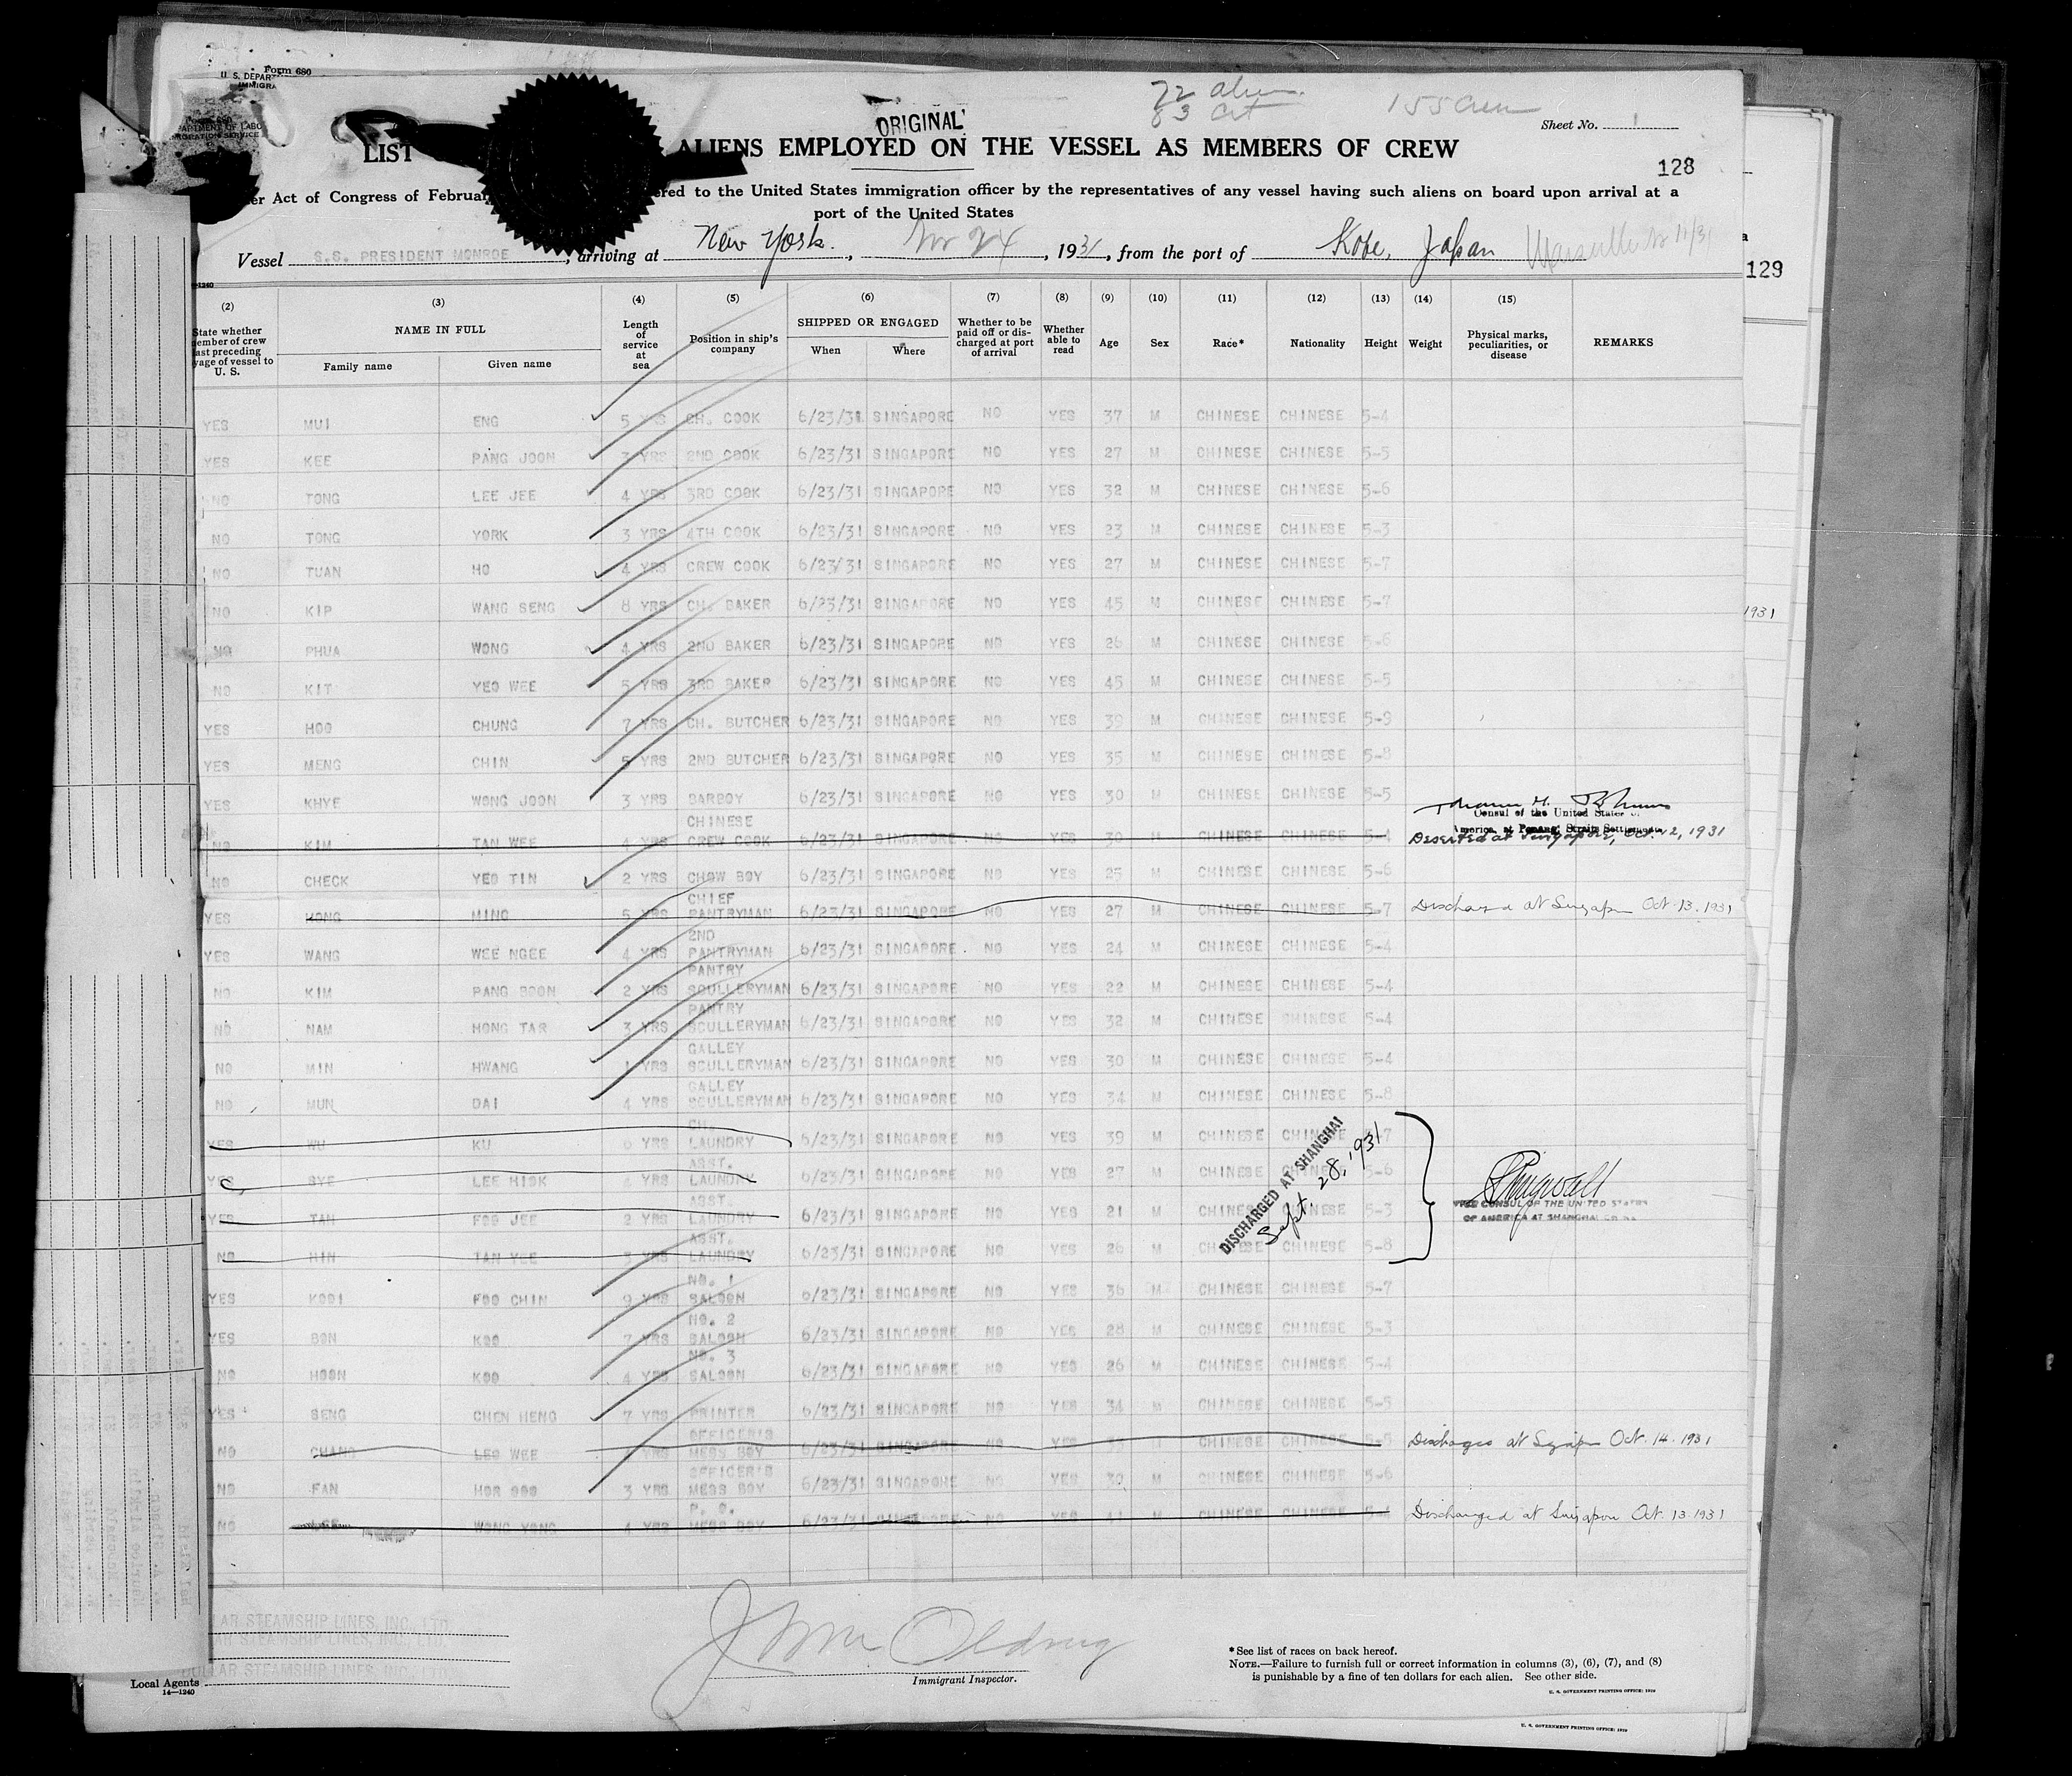 Form 680
U. S. DEPART
IMMIGRA
ORIGINAL
72 alien
83 cit
155 crew
Sheet No. 1
LIST ALIENS EMPLOYED ON THE VESSEL AS MEMBERS OF CREW
128
er Act of Congress of Februar ered to the United States immigration officer by the representatives of any vessel having such aliens on board upon arrival at a
port of the United States
Vessel S.S. PRESIDENT MONROE, arriving at New York., Nov 24, 1931, from the port of Kobe, Japan
129
(2) (3) (4) (5) (6) (7) (8) (9) (10) (11) (12) (13) (14) (15)
State whether member of crew last preceding voyage of vessel to U. S. NAME IN FULL Family name Given name Length of service at sea Position in ship's company SHIPPED OR ENGAGED When Where Whether to be paid off or discharged at port of arrival Whether able to read Age Sex Race* Nationality Height Weight Physical marks, peculiarities, or disease REMARKS
YES MUI ENG 5 YRS CH. COOK 6/23/31 SINGAPORE NO YES 37 M CHINESE CHINESE 5-4
YES KEE PANG JOON 3 YRS 2ND COOK 6/23/31 SINGAPORE NO YES 27 M CHINESE CHINESE 5-5
NO TONG LEE JEE 4 YRS 3RD COOK 6/23/31 SINGAPORE NO YES 32 M CHINESE CHINESE 5-6
NO TONG YORK 3 YRS 4TH COOK 6/23/31 SINGAPORE NO YES 23 M CHINESE CHINESE 5-3
NO TUAN HO 4 YRS CREW COOK 6/23/31 SINGAPORE NO YES 27 M CHINESE CHINESE 5-7
NO KIP WANG SENG 8 YRS CH. BAKER 6/23/31 SINGAPORE NO YES 45 M CHINESE CHINESE 5-7
1931
NO PHUA WONG 4 YRS 2ND BAKER 6/23/31 SINGAPORE NO YES 26 M CHINESE CHINESE 5-6
NO KIT YEO WEE 5 YRS 3RD BAKER 6/23/31 SINGAPORE NO YES 45 M CHINESE CHINESE 5-5
YES HOO CHUNG 7 YRS CH. BUTCHER 6/23/31 SINGAPORE NO YES 39 M CHINESE CHINESE 5-9
YES MENG CHIN 5 YRS 2ND BUTCHER 6/23/31 SINGAPORE NO YES 35 M CHINESE CHINESE 5-8
YES KHYE WONG JOON 3 YRS BARBOY 6/23/31 SINGAPORE NO YES 30 M CHINESE CHINESE 5-5
Consul of the United States of
America, at Penang, Straits Settlements
NO KIM TAN WEE 4 YRS CHINESE CREW COOK 6/23/31 SINGAPORE NO YES 30 M CHINESE CHINESE 5-4 Deserted at Singapore, Oct. 12, 1931
NO CHECK YEO TIN 2 YRS CHOW BOY 6/23/31 SINGAPORE NO YES 25 M CHINESE CHINESE 5-6
YES HONG MING 5 YRS CHIEF PANTRYMAN 6/23/31 SINGAPORE NO YES 27 M CHINESE CHINESE 5-7 Discharged at Singapore Oct. 13. 1931
YES WANG WEE NGEE 4 YRS 2ND PANTRYMAN 6/23/31 SINGAPORE NO YES 24 M CHINESE CHINESE 5-4
NO KIM PANG BOON 2 YRS PANTRY SCULLERYMAN 6/23/31 SINGAPORE NO YES 22 M CHINESE CHINESE 5-4
NO NAM HONG TAR 3 YRS PANTRY SCULLERYMAN 6/23/31 SINGAPORE NO YES 32 M CHINESE CHINESE 5-4
NO MIN HWANG 1 YRS GALLEY SCULLERYMAN 6/23/31 SINGAPORE NO YES 30 M CHINESE CHINESE 5-4
NO MUN DAI 4 YRS GALLEY SCULLERYMAN 6/23/31 SINGAPORE NO YES 34 M CHINESE CHINESE 5-8
YES WU KU 6 YRS CH. LAUNDRY 6/23/31 SINGAPORE NO YES 39 M CHINESE CHINESE 5-7
DISCHARGED AT SHANGHAI
Sept. 28, 1931
YES SYE LEE HIOK 4 YRS ASST. LAUNDRY 6/23/31 SINGAPORE NO YES 27 M CHINESE CHINESE 5-6
VICE CONSUL OF THE UNITED STATES
OF AMERICA AT SHANGHAI
YES TAN FOO JEE 2 YRS ASST. LAUNDRY 6/23/31 SINGAPORE NO YES 21 M CHINESE CHINESE 5-3
NO HIN TAN YEE 3 YRS ASST. LAUNDRY 6/23/31 SINGAPORE NO YES 26 M CHINESE CHINESE 5-8
YES KOOI FOO CHIN 9 YRS NO. 1 SALOON 6/23/31 SINGAPORE NO YES 36 M CHINESE CHINESE 5-7
YES BON KOO 7 YRS NO. 2 SALOON 6/23/31 SINGAPORE NO YES 28 M CHINESE CHINESE 5-3
NO HOON KOO 4 YRS NO. 3 SALOON 6/23/31 SINGAPORE NO YES 26 M CHINESE CHINESE 5-4
YES SENG CHEN HENG 7 YRS PRINTER 6/23/31 SINGAPORE NO YES 34 M CHINESE CHINESE 5-5
NO CHANG LEO WEE YRS OFFICER'S MESS BOY 6/23/31 SINGAPORE NO YES CHINESE CHINESE Discharged at Singapore Oct. 14. 1931
NO FAN HOR SOO 3 YRS OFFICER'S MESS BOY 6/23/31 SINGAPORE NO YES 30 M CHINESE CHINESE 5-6
NO LEE WONG YONG 4 YRS P. O. MESS BOY 6/23/31 SINGAPORE NO YES 41 M CHINESE CHINESE 5-4 Discharged at Singapore Oct. 13. 1931
LAR STEAMSHIP LINES, INC., LTD.
AR STEAMSHIP LINES, INC., LTD.
DOLLAR STEAMSHIP LINES, INC., LTD.
Local Agents
14—1240
Immigrant Inspector.
*See list of races on back hereof.
NOTE.—Failure to furnish full or correct information in columns (3), (6), (7), and (8)
is punishable by a fine of ten dollars for each alien. See other side.
U. S. GOVERNMENT PRINTING OFFICE: 1929
U. S. GOVERNMENT PRINTING OFFICE: 1929